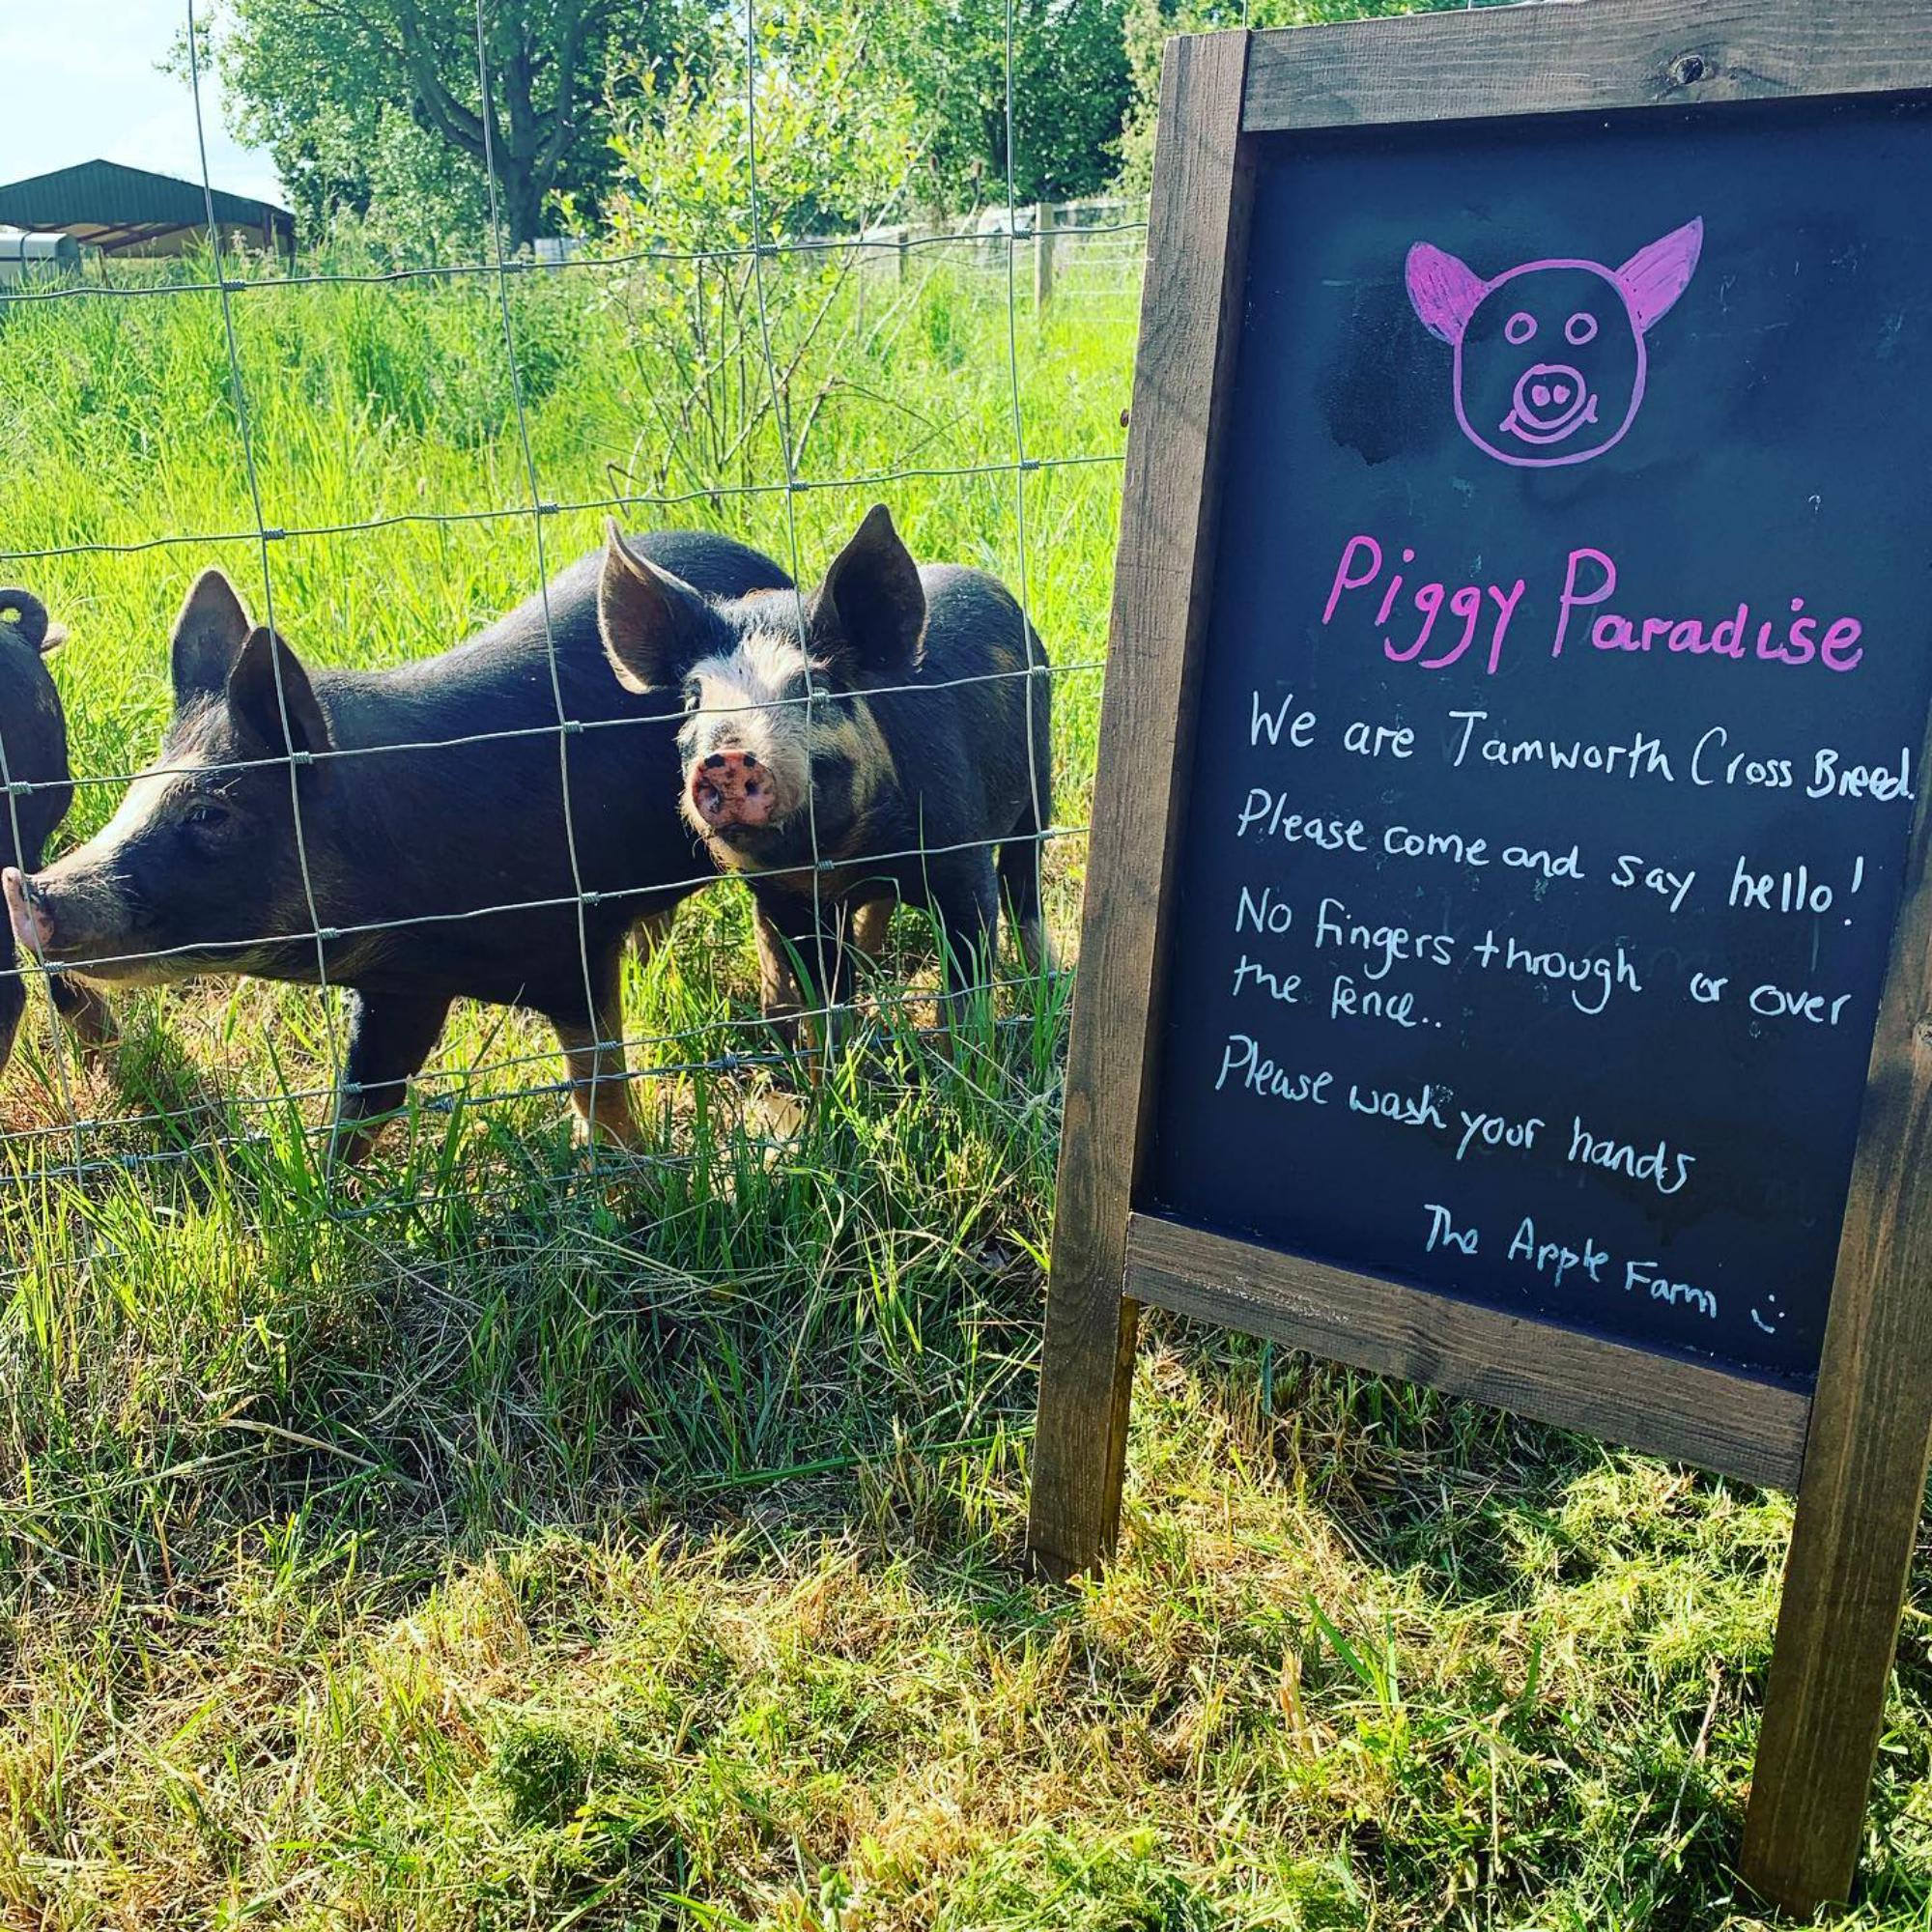 Piggy Paradise
We are Tamworth Cross Breed.
Please come and say hello!
No fingers through or over
the fence..
Please wash your hands
The Apple Farm :)